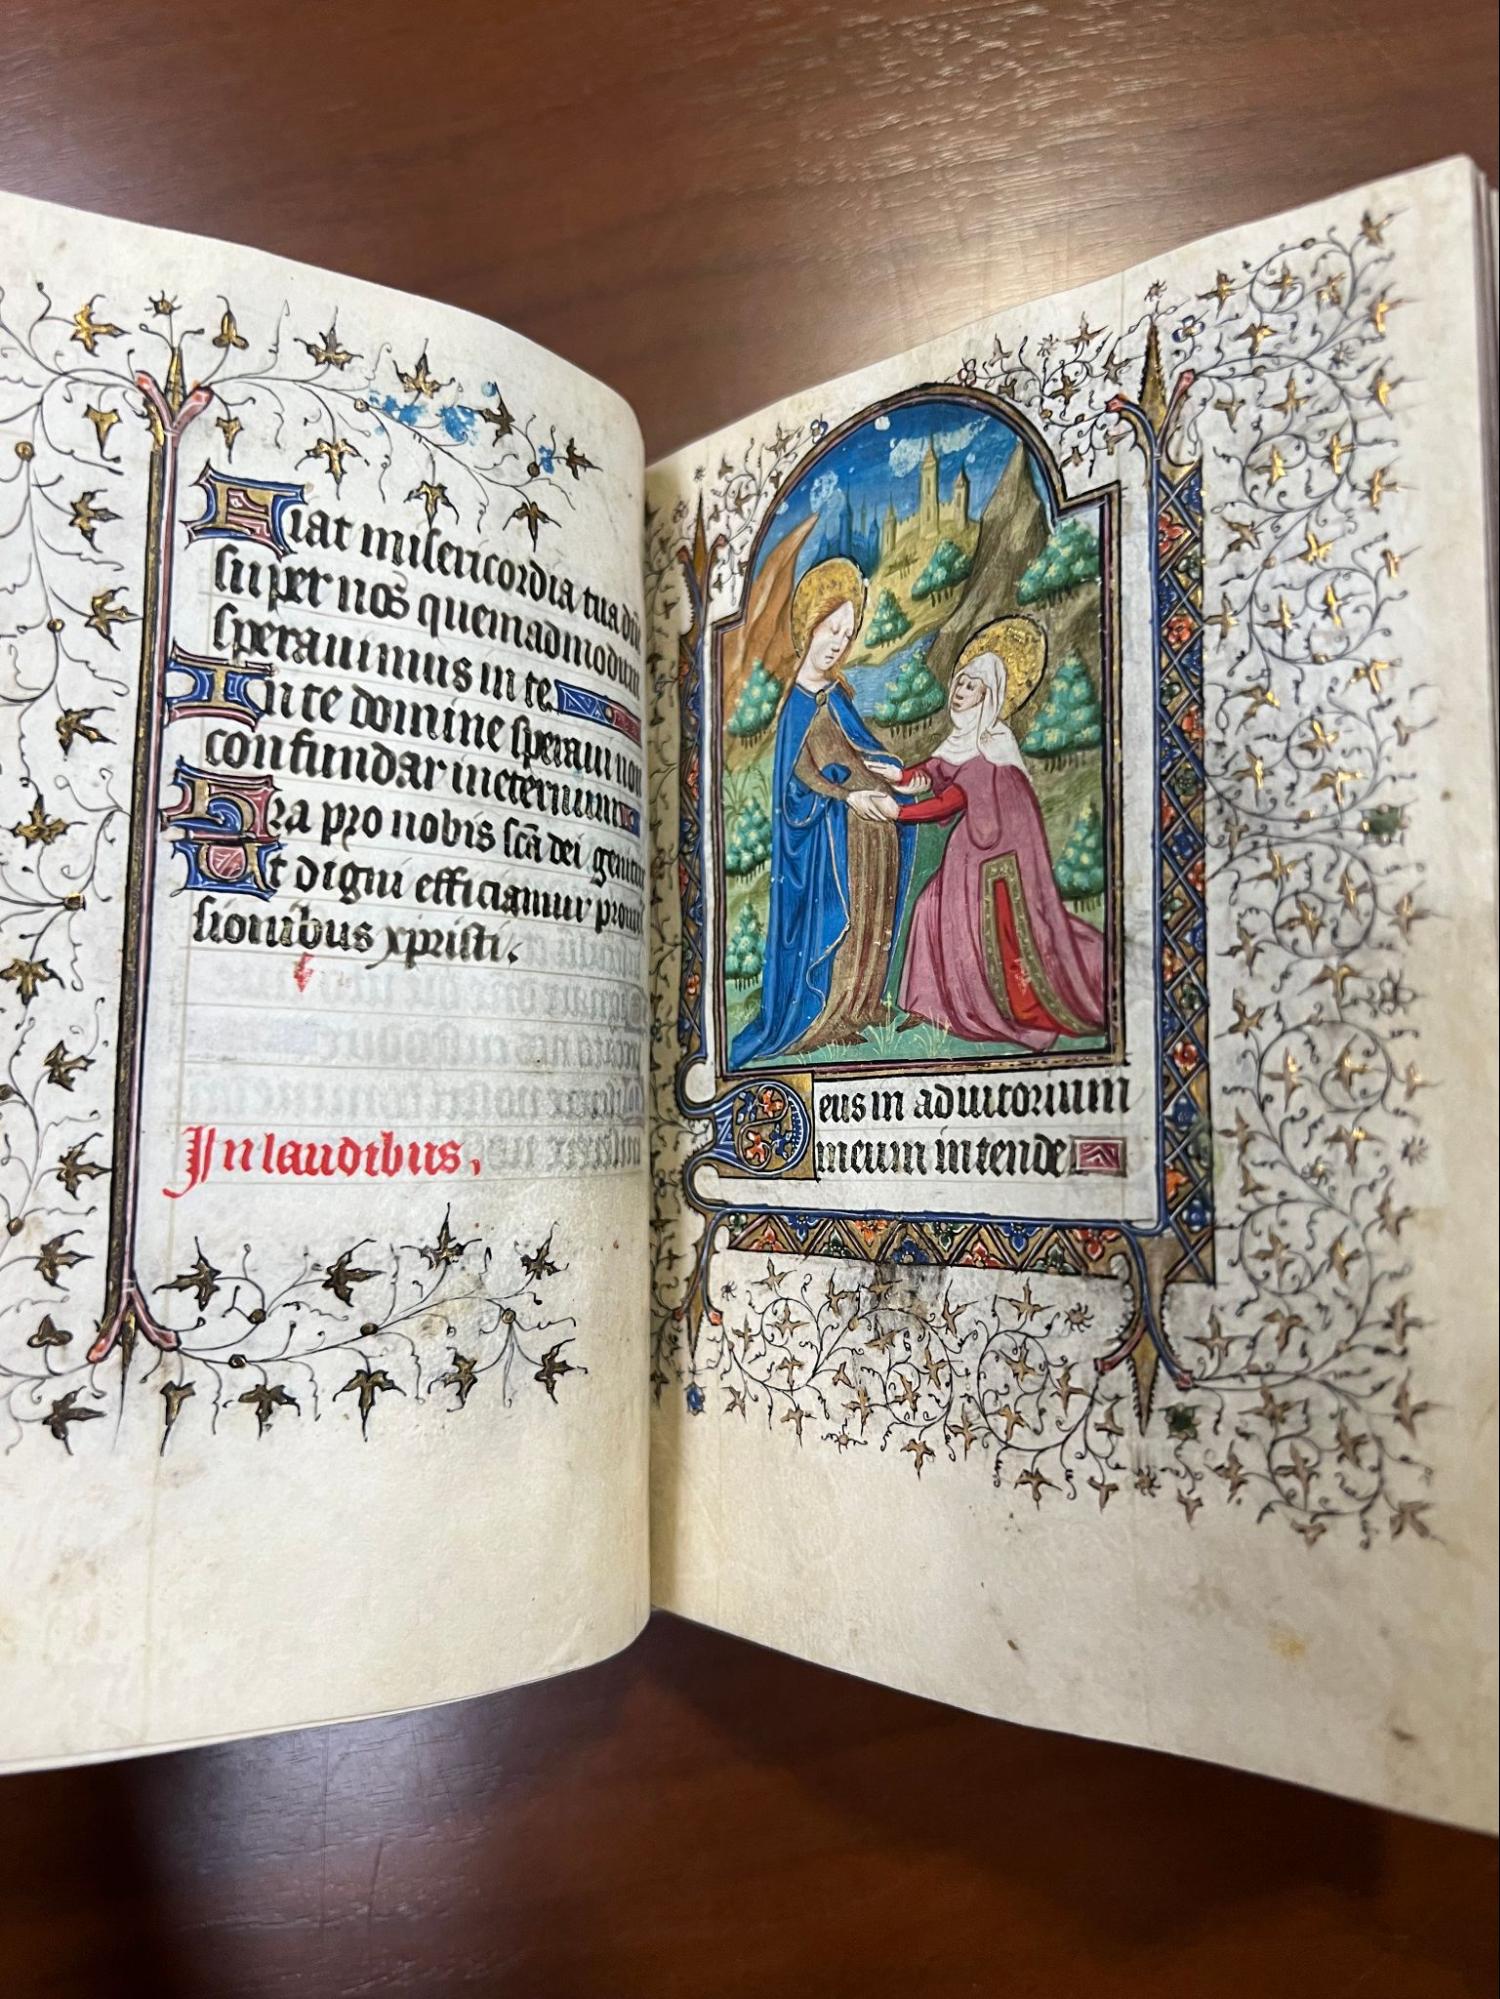 Fiat misericordia tua dñe
super nos quemadmodum
speravimus in te
In te domine speravi non
confundar in eternum
Ora pro nobis scã dei genitrix
Ut digni efficiamur promis
sionibus xpristi.
In laudibus,
Deus in adiutorium
meum intende